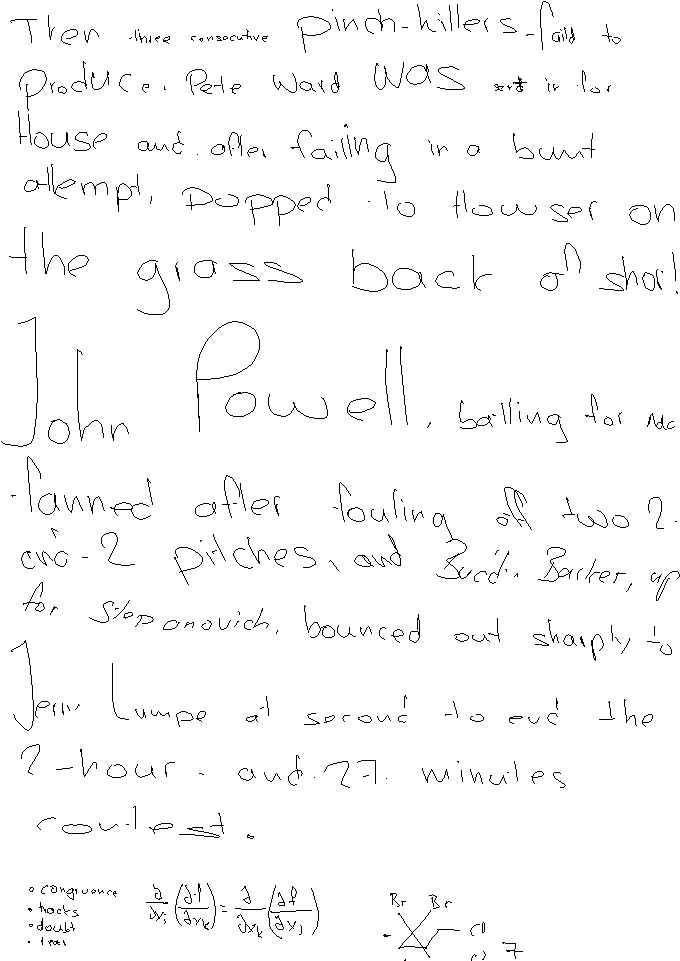 Then three consecutive pinch-hitters faild to
produce. Pete Ward was sent in for
House and after failing in a bunt
attempt, popped to Howser on
the grass back of short
John Powell, batting for
fanned after fouling off two 2-
and-2 pitches, and Buddy Barker, up
for Stepanovich, bounced out sharply to
Jerry Lumpe at second to end the
2-hour-and-27-minutes
contest.
• congruence
• hocks
• doubt
•
∂/∂xⱼ (∂f/∂xₖ) = ∂/∂xₖ (∂f/∂xⱼ)
Br Br
Cl
7